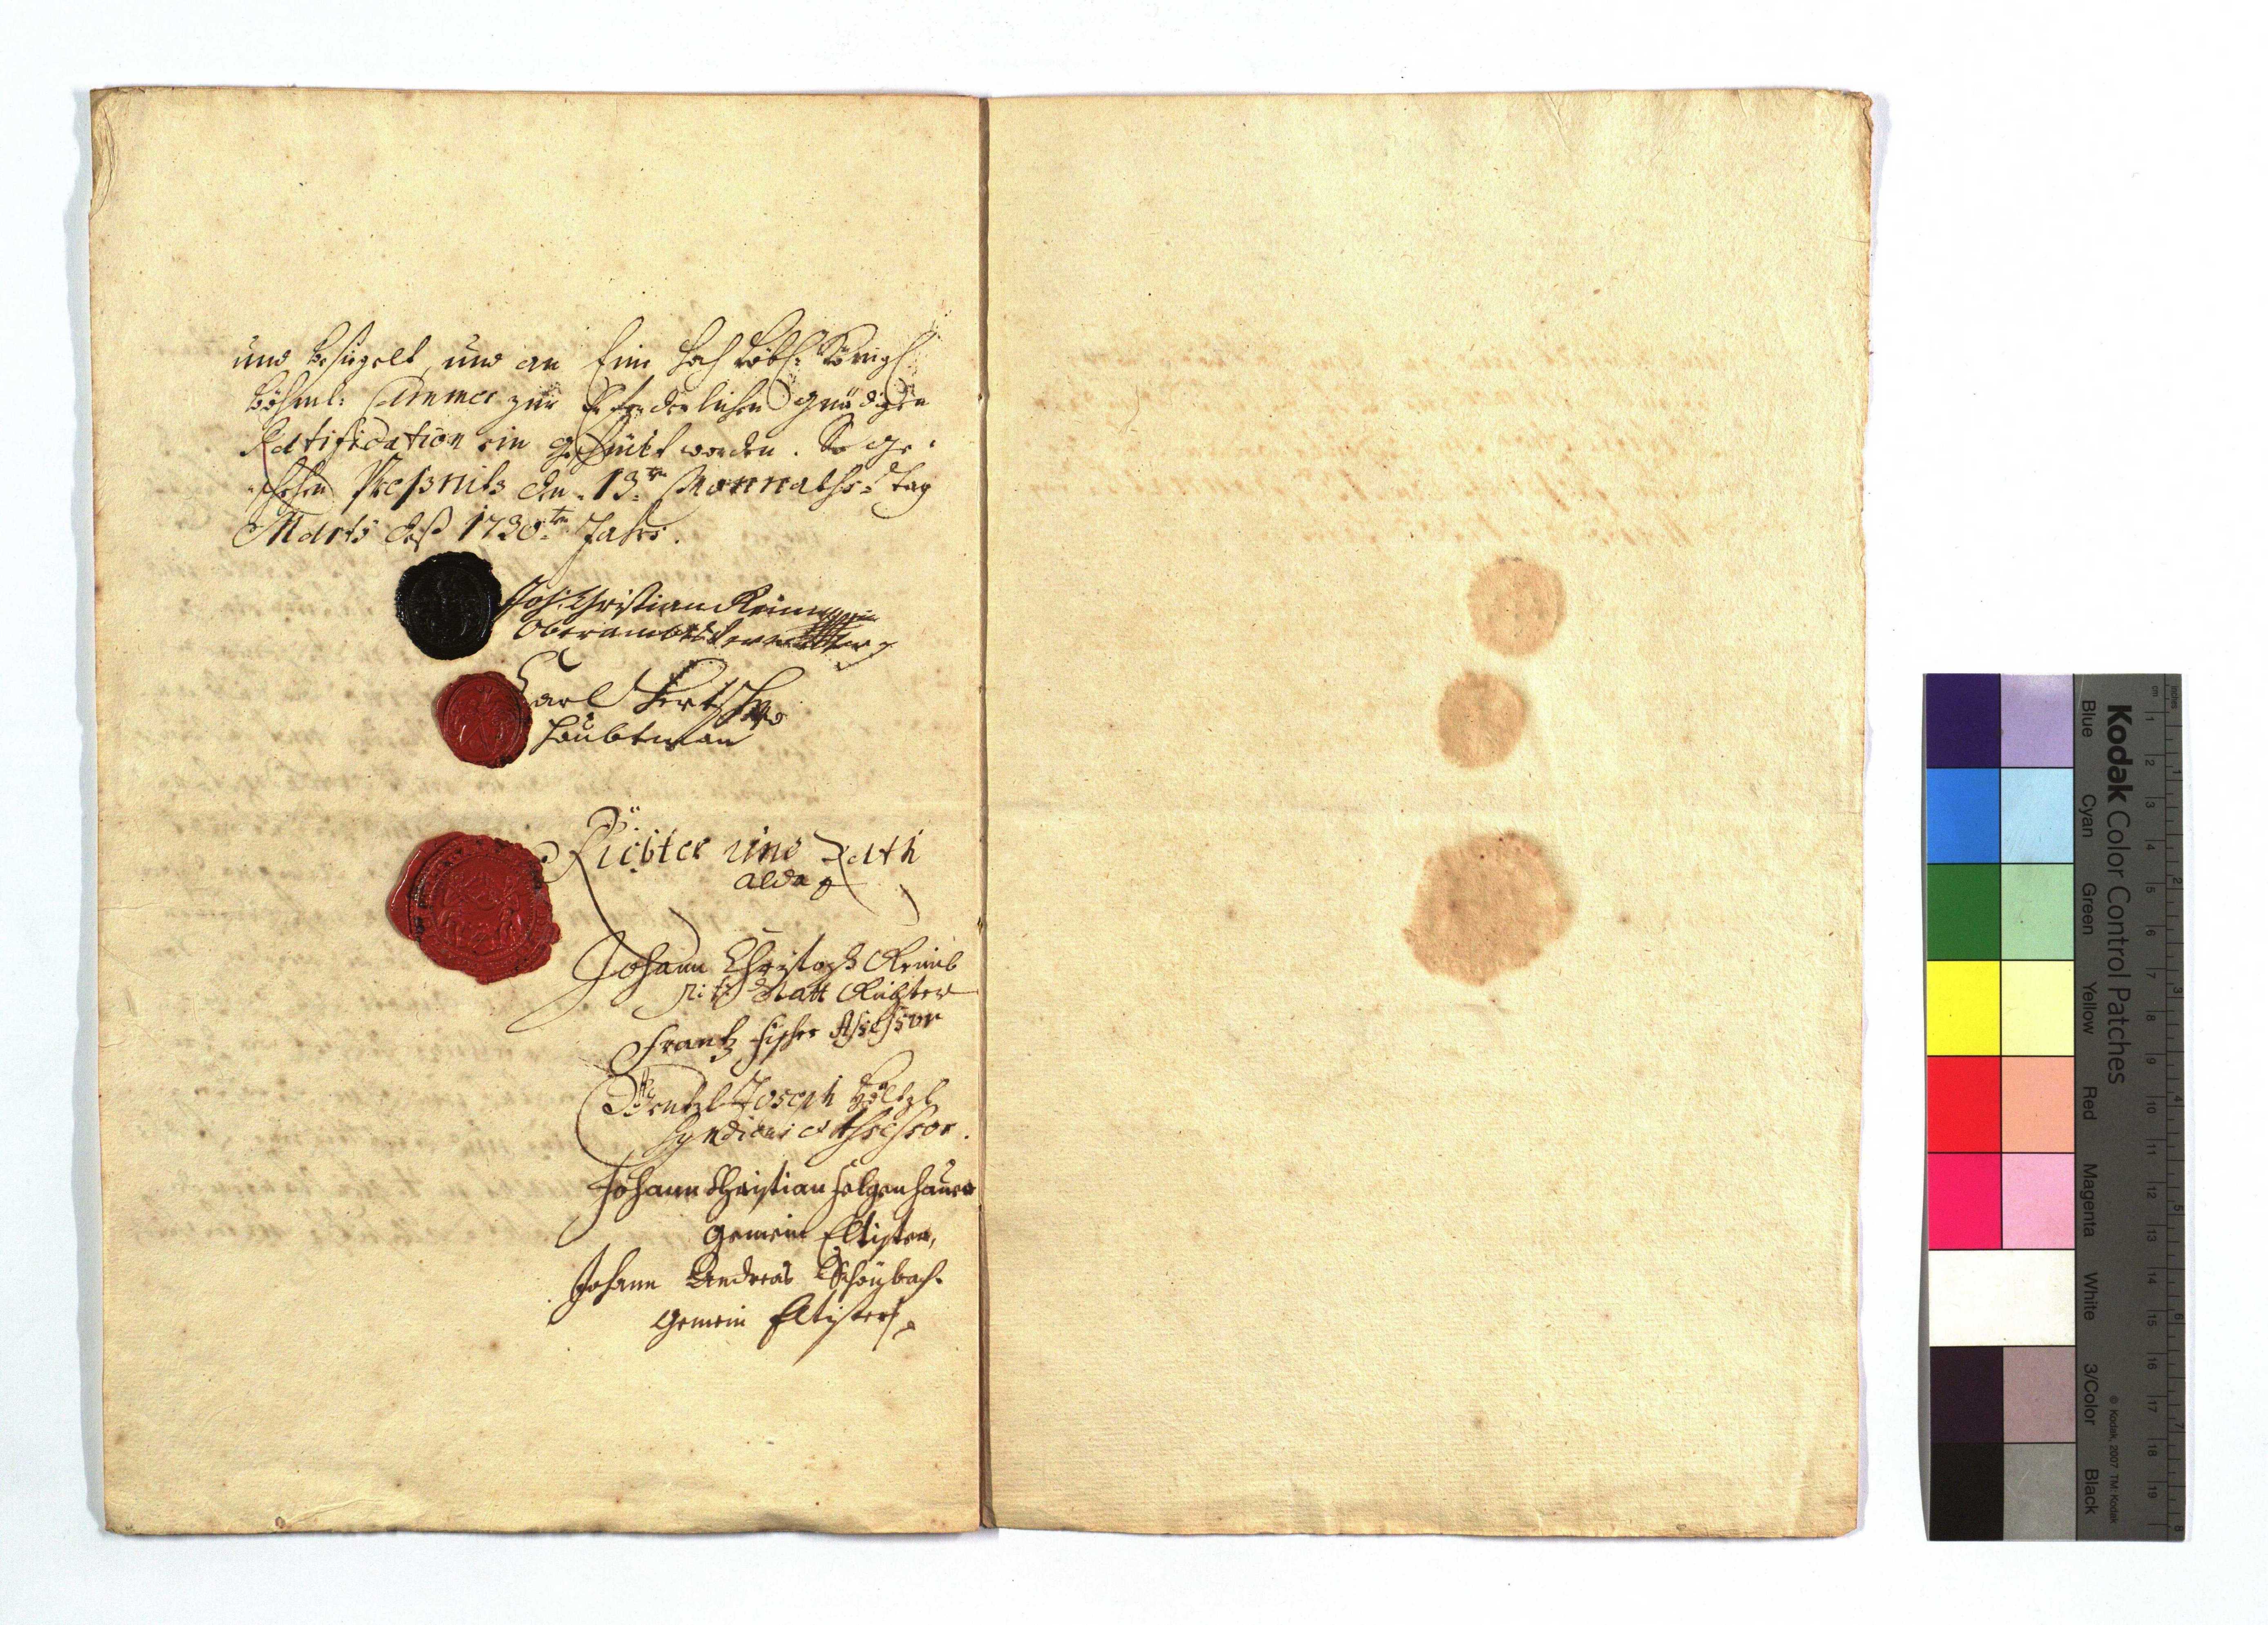 und besiegelt, und an Eine hoch löbl: Königl:
Böhml: Cammer zur Erforderlichen Gnädigen
Ratification ein geschückt worden. So ge-
schehen Preßnitz den 13ten Monnaths-Tag
Marti deß 1730ten Jahrs.
Joh: Christian
Carl
Haubtman
Richter und Rath
alda
Johann Christoph
Statt Richter
Frantz Fischer Assessor
Wentzl Joseph Höltzl
Syndicus et Assessor.
Johann Christian Felgenhauer
Gemein Eltister,
Johann Andreas Schönbach.
Gemein Eltister
Kodak Color Control Patches
Blue Cyan Green Yellow Red Magenta White 3/Color Black
© Kodak, 2007 TM: Kodak
inches 1 2 3 4 5 6 7 8
cm 1 2 3 4 5 6 7 8 9 10 11 12 13 14 15 16 17 18 19